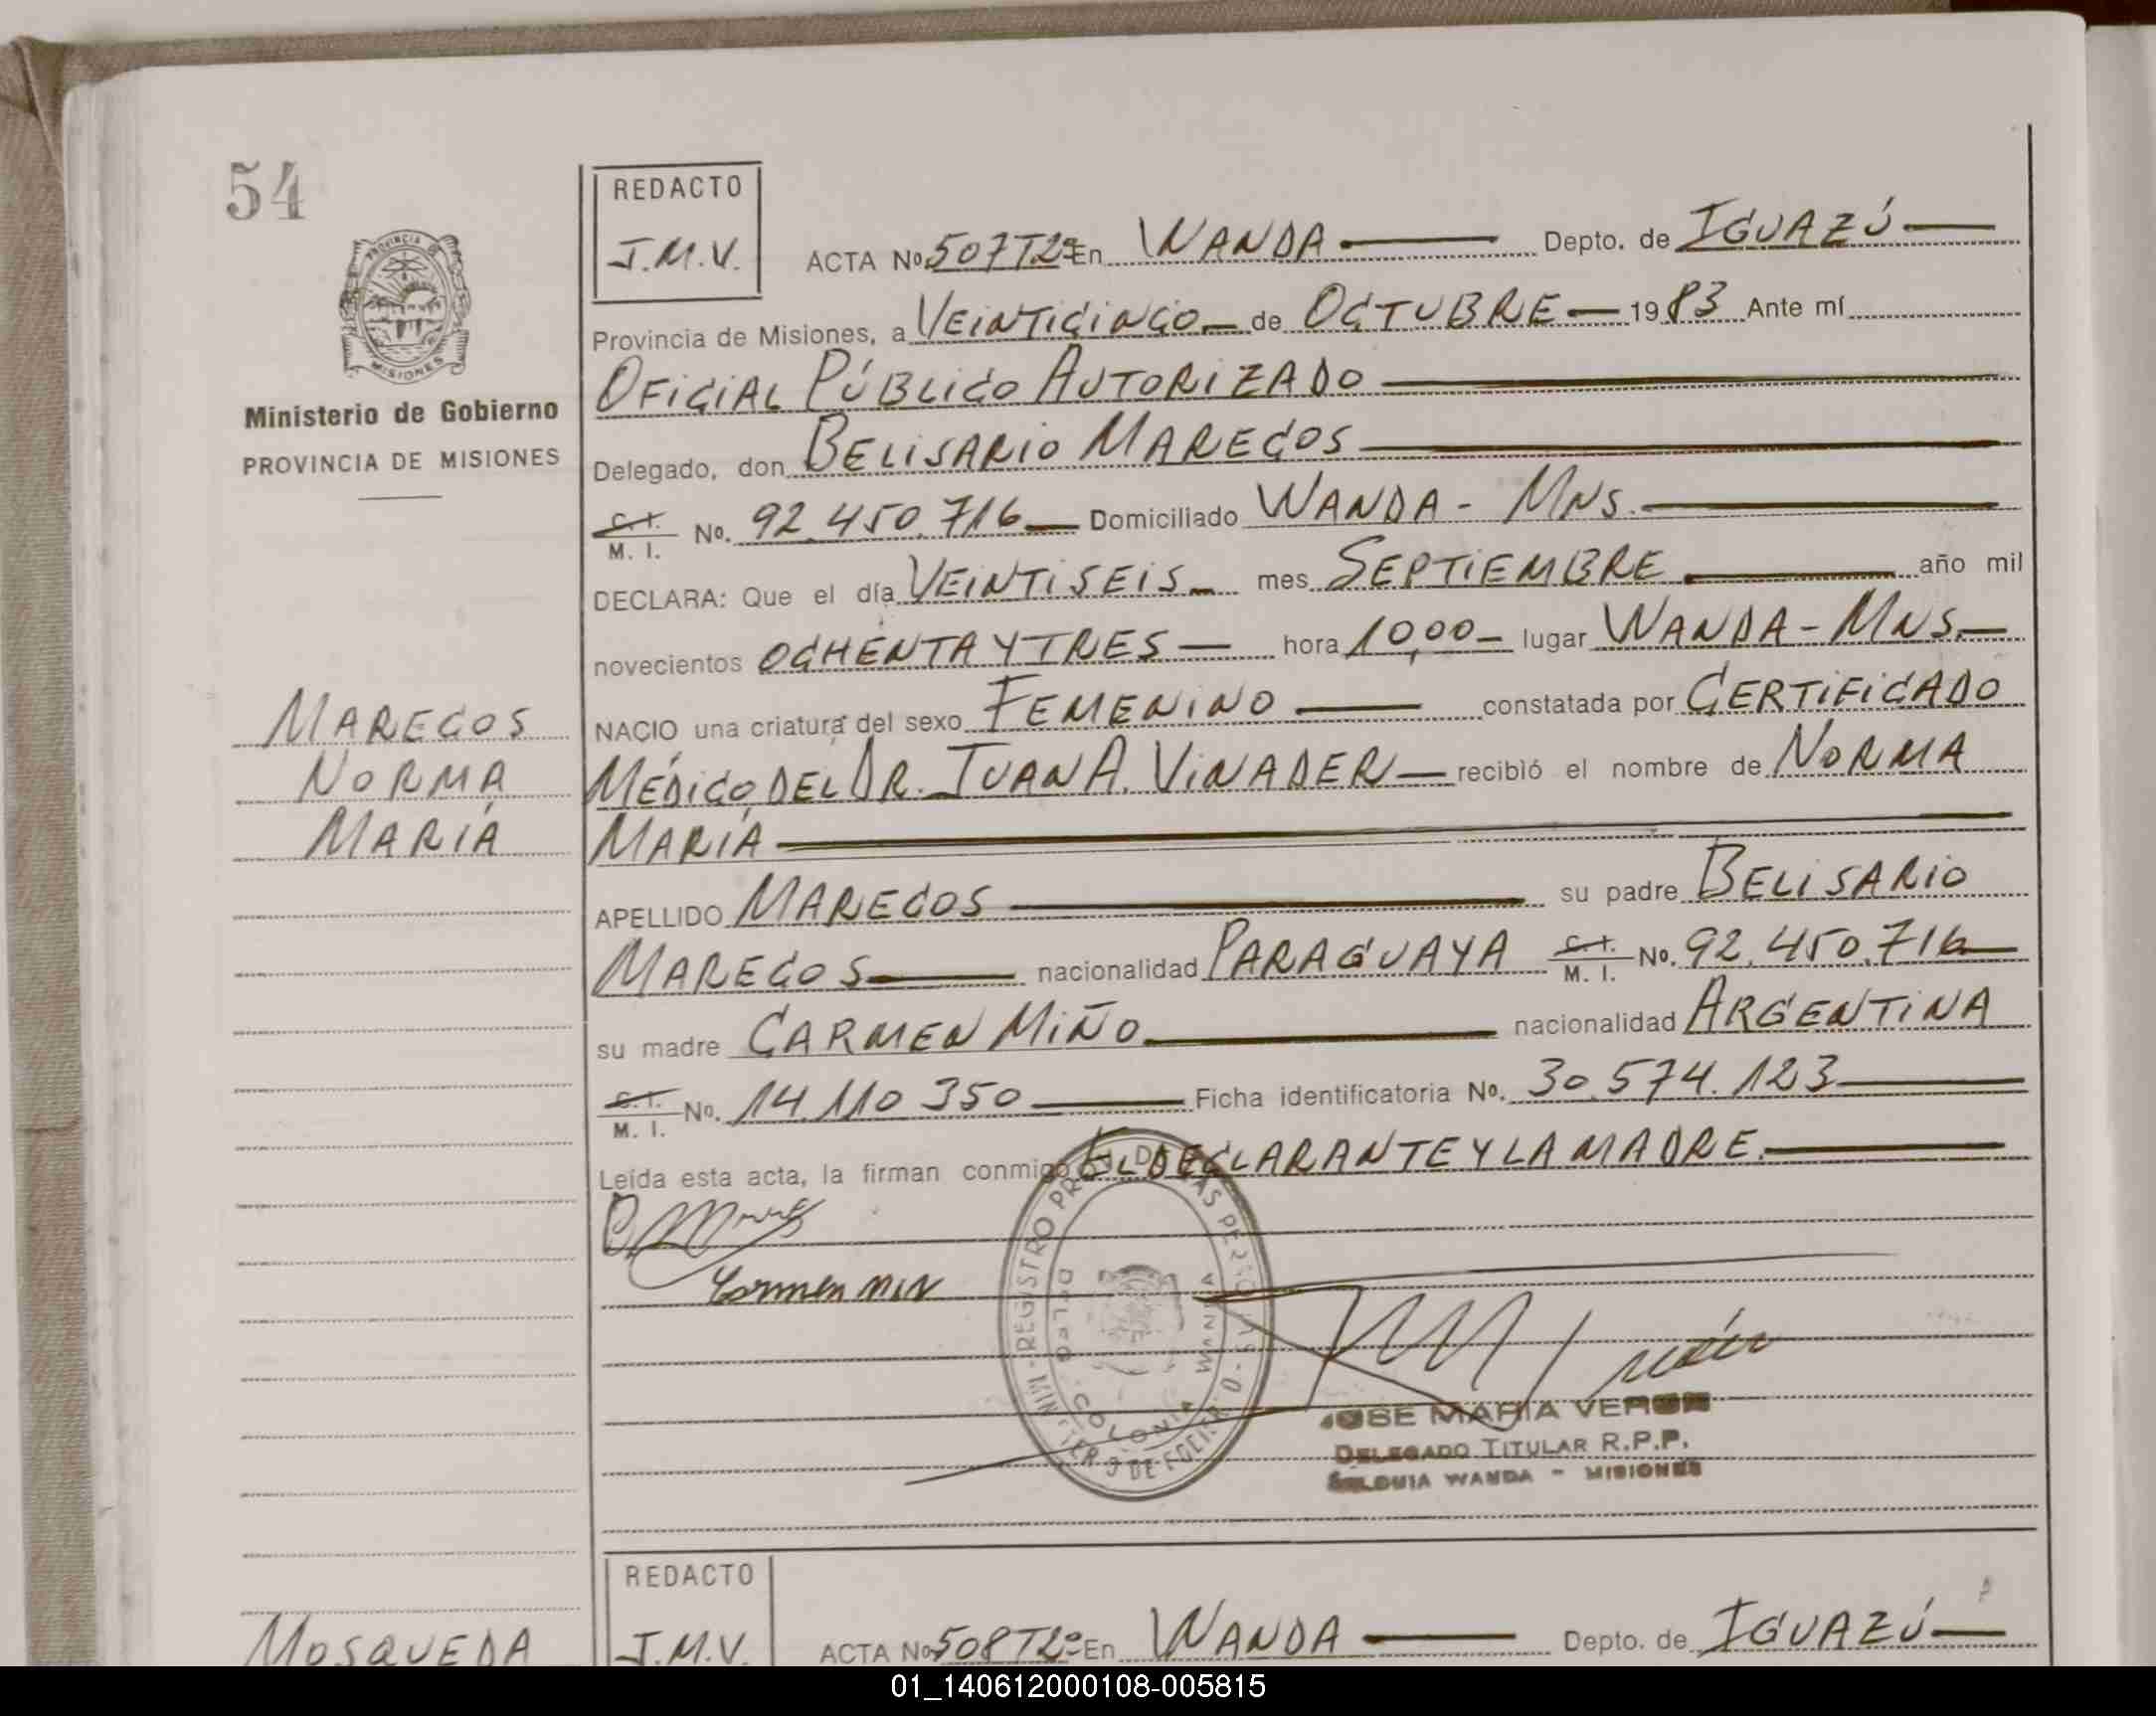 54
REDACTO
J.M.V.
ACTA No 507 T2º En WANDA Depto. de IGUAZÚ
Provincia de Misiones, a VEINTICINCO de OCTUBRE 1983 Ante mí
OFICIAL PÚBLICO AUTORIZADO
Ministerio de Gobierno
PROVINCIA DE MISIONES
Delegado, don BELISARIO MARECOS
C.I. M. I. No. 92.450.716 Domiciliado WANDA - MNS.
DECLARA: Que el día VEINTISEIS mes SEPTIEMBRE año mil
novecientos OCHENTA Y TRES hora 10,00 lugar WANDA - MNS.
MARECOS
NORMA
MARÍA
NACIO una criatura del sexo FEMENINO constatada por CERTIFICADO
MÉDICO DEL DR. JUAN A. VINADER recibió el nombre de NORMA
MARÍA
APELLIDO MARECOS su padre BELISARIO
MARECOS nacionalidad PARAGUAYA C.I. M. I. No. 92.450.716
su madre CARMEN MIÑO nacionalidad ARGENTINA
C.I. M. I. No. 14.110.350 Ficha identificatoria No. 30.574.123
Leída esta acta, la firman conmigo EL DECLARANTE Y LA MADRE.
Carmen
COLONIA WANDA
JOSE MARIA VERON
DELEGADO TITULAR R.P.P.
COLONIA WANDA - MISIONES
REDACTO
MOSQUEDA
J.M.V.
ACTA No 508 T2º En WANDA Depto. de IGUAZÚ
01_140612000108-005815